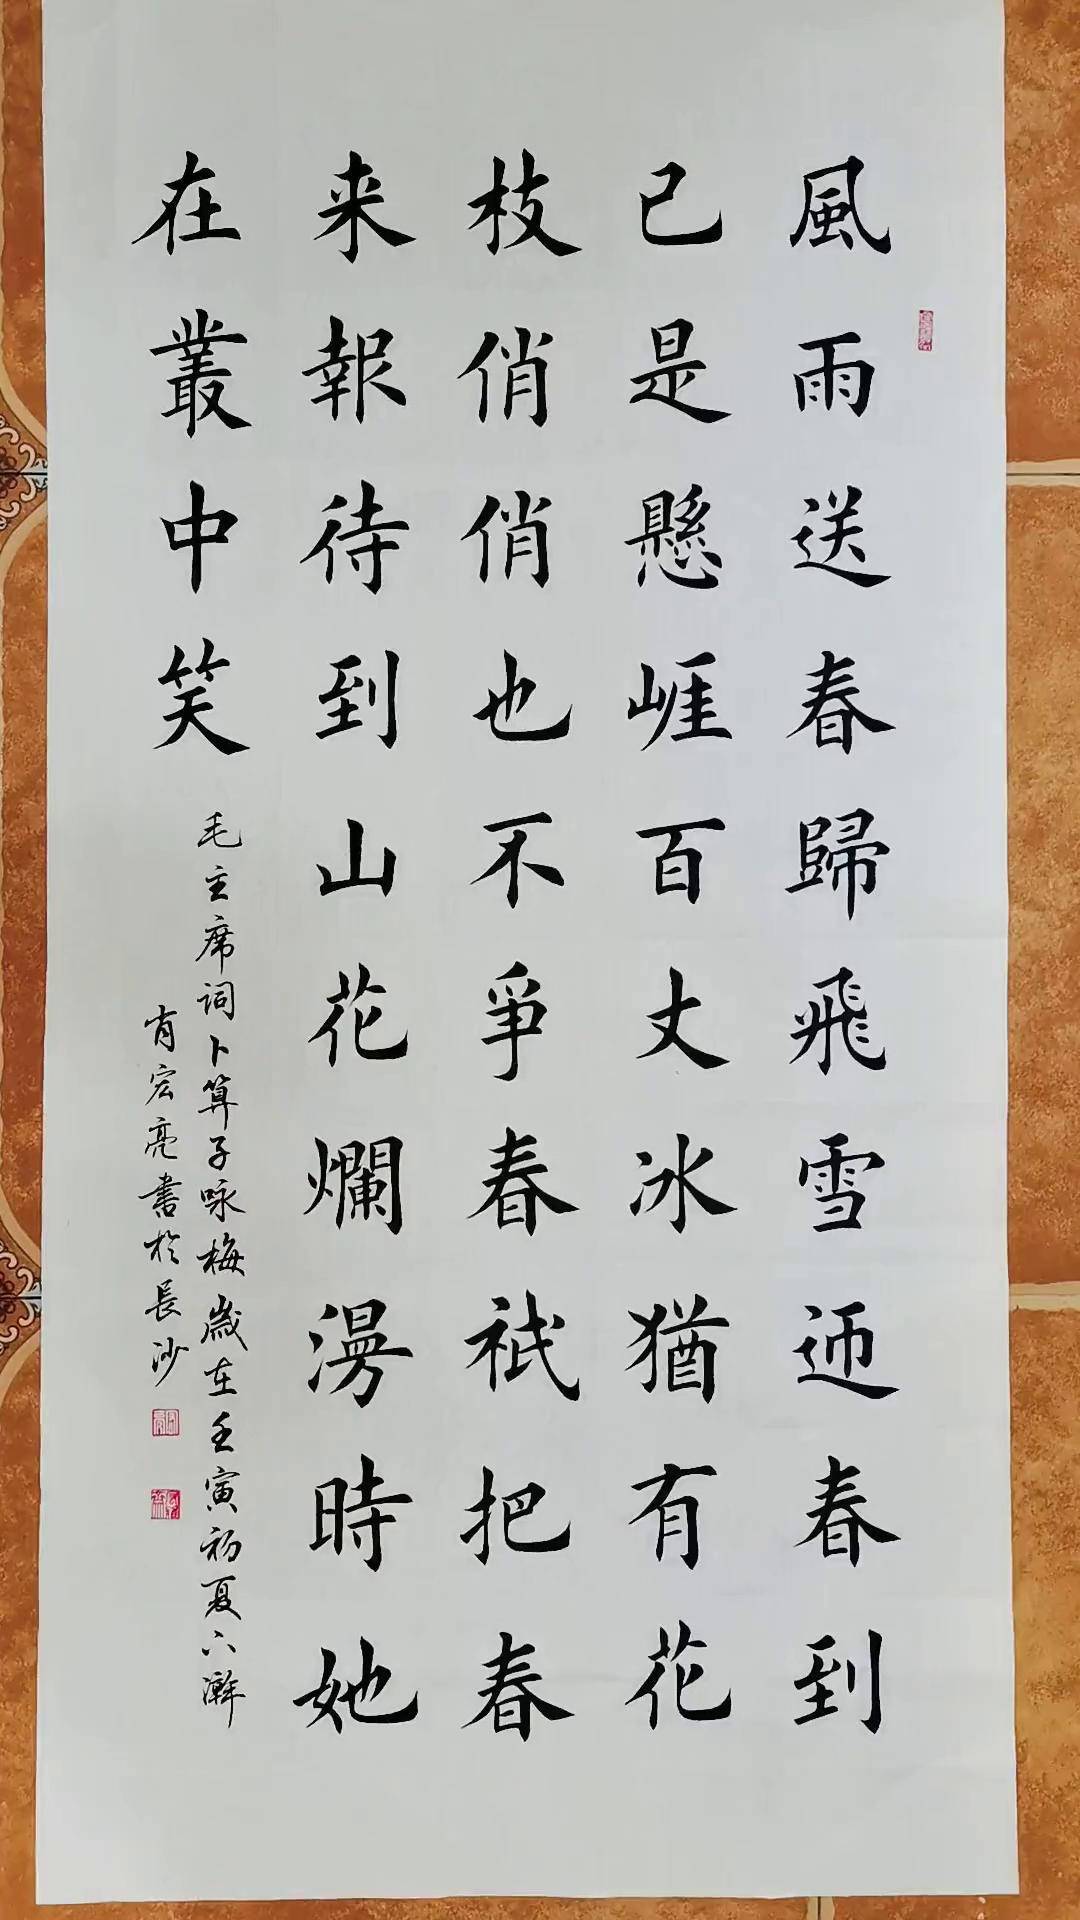 風雨送春歸飛雪迊春到
已是懸崕百丈冰猶有花
枝俏俏也不爭春祇把春
来報待到山花爛漫時她
在叢中笑
毛主席词卜算子咏梅歲在壬寅初夏六澣
肖宏亮書於長沙